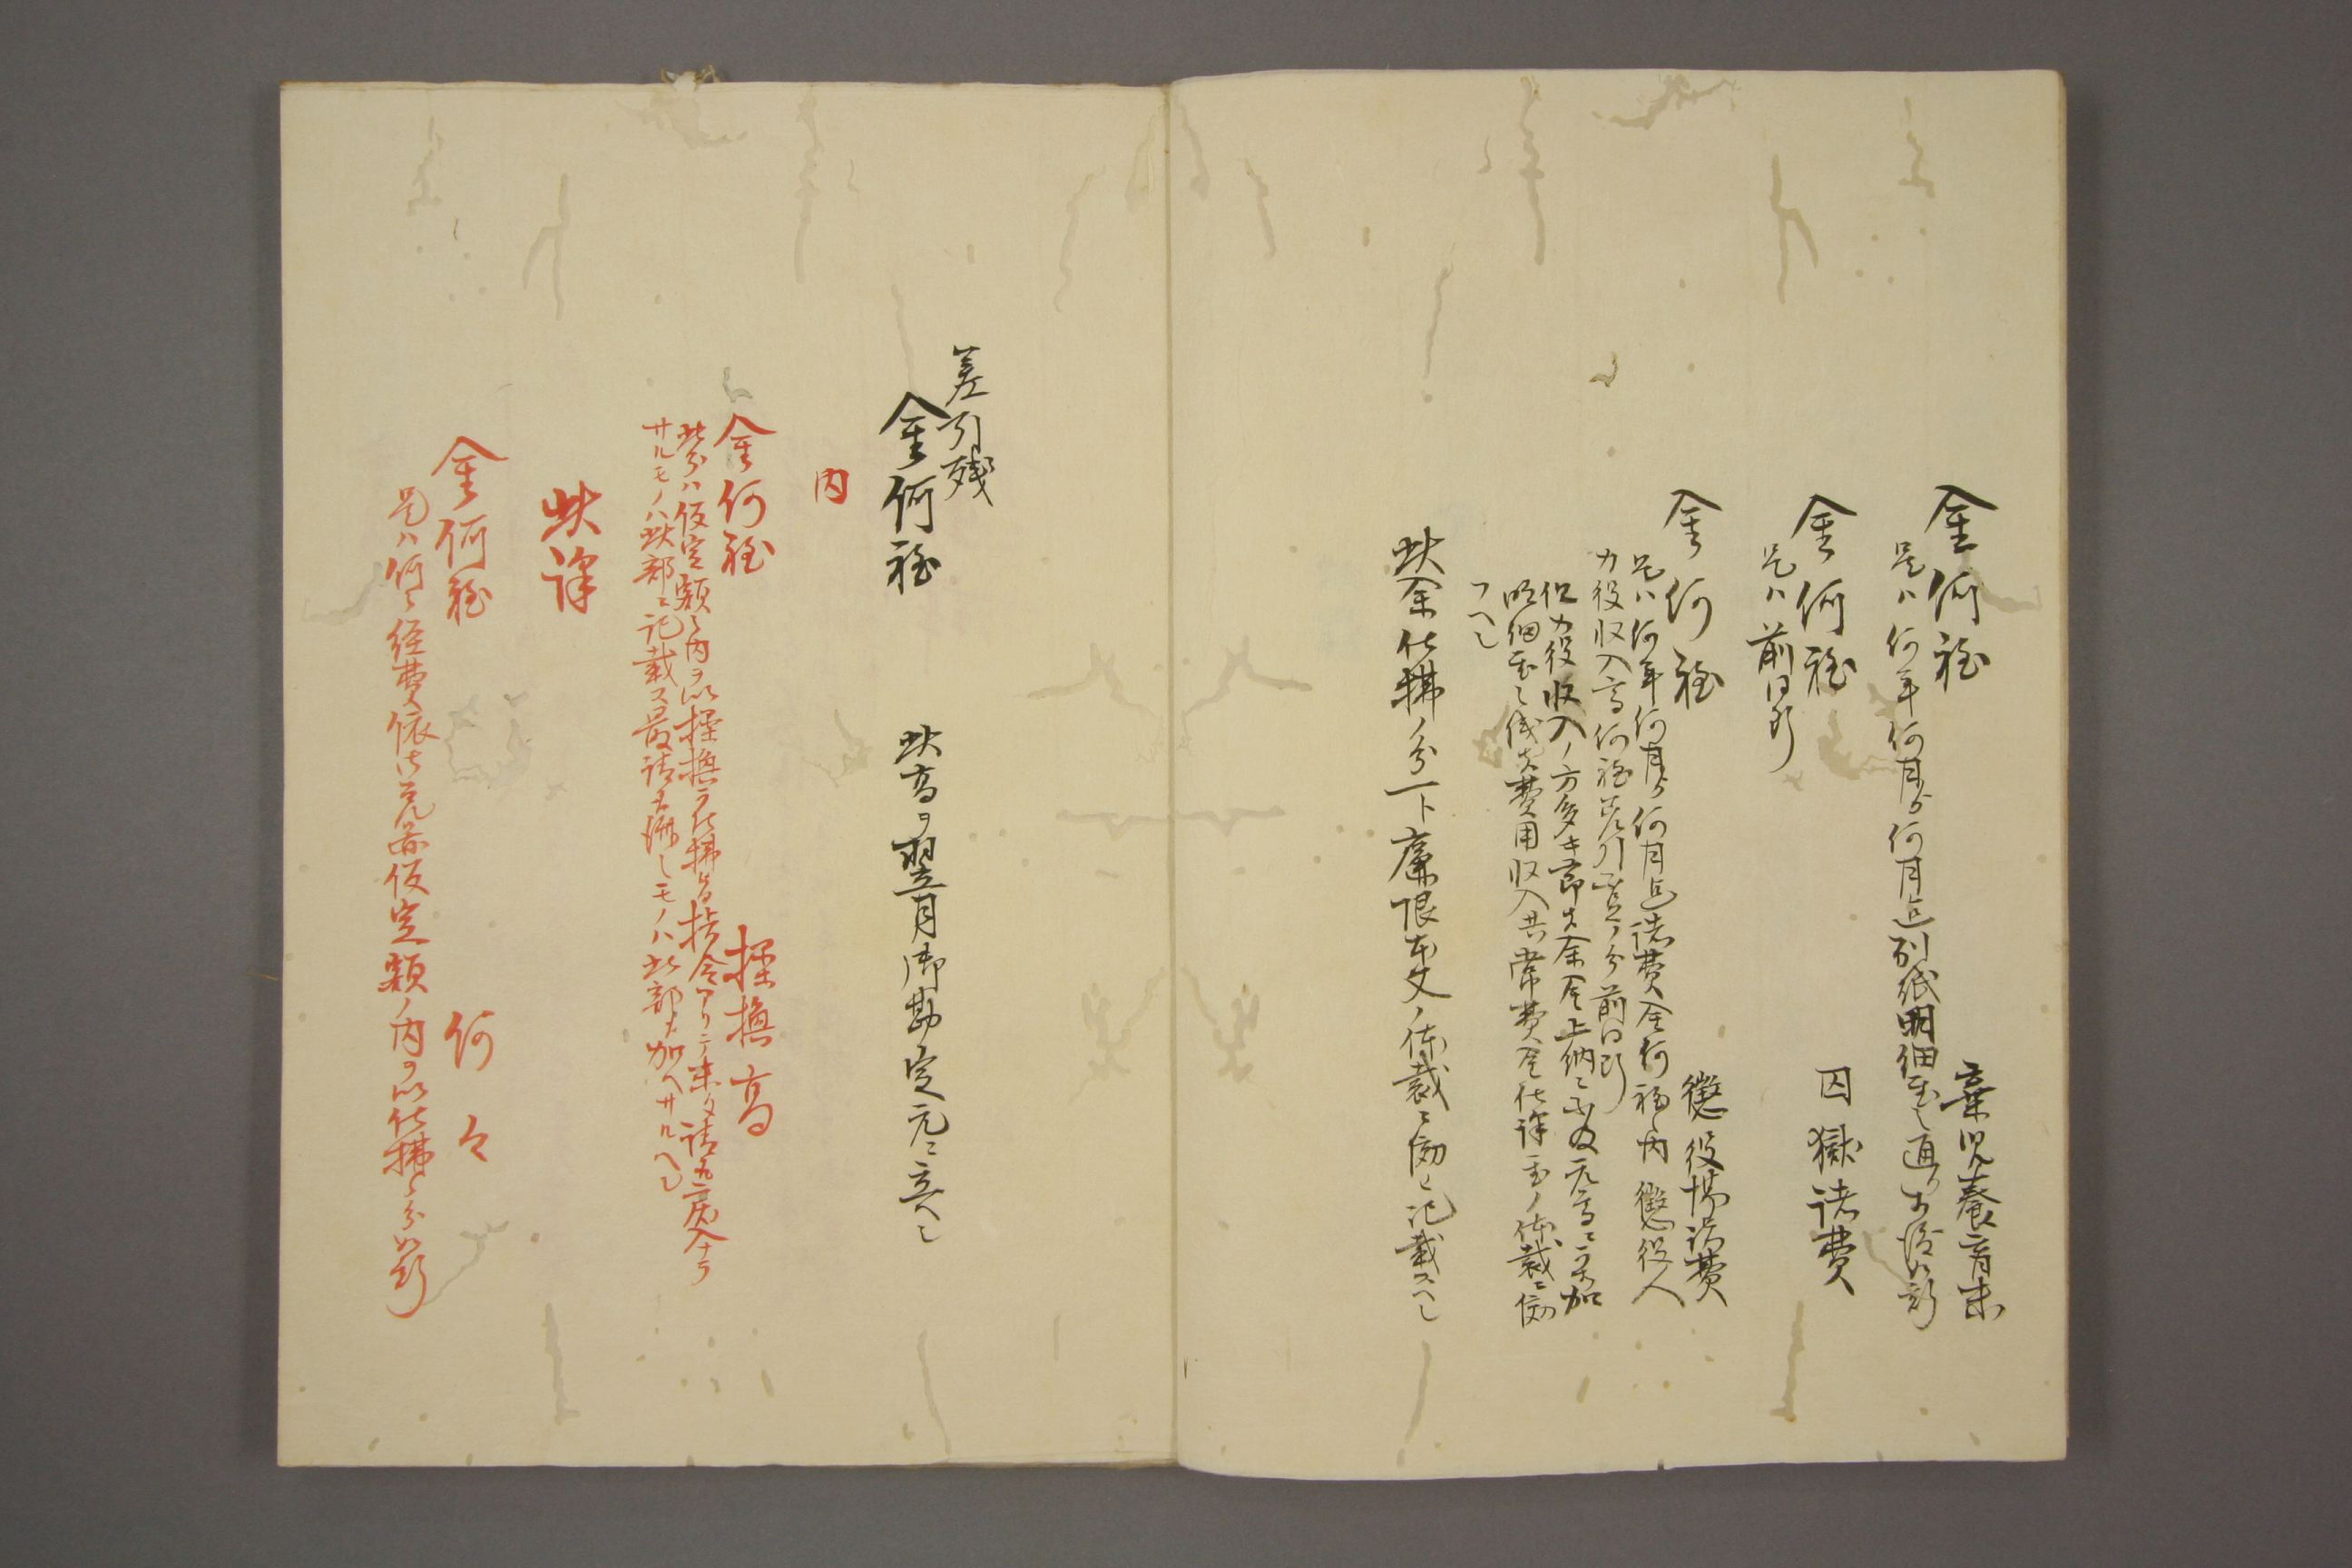 金何程　棄児養育米
是ハ何年何月ゟ何月迄別紙明細書之通
金何程　囚獄諸費
是ハ前同断
金何程　懲役場諸費
是ハ何年何月ゟ何月迄諸費金何程内懲役人
力役収入高何程差引 前同断
但力役収入ノ方多キ節ハ余金上納ニ不及元高ニ 加
明細書之儀ハ費用収入共常費金仕訳書ノ体裁ニ倣
フヘし
此余仕拂ノ分一ト廉限本文ノ体裁ニ倣ヒ記載スヘし
差引残
金何程　此高ヲ翌月御勘定元ニ立ヘし
内
金何程　操換高
此分ハ仮定額之内ヲ以操換ヲ仕拂 指令アリテ未タ請
サルモノハ此部ニ記載ス最請取済しモノハ此部ヱ加ヘサルヘし
此訳
金何程　何々
是ハ何々経費依伺 仮定額ノ内ヲ以仕拂之分